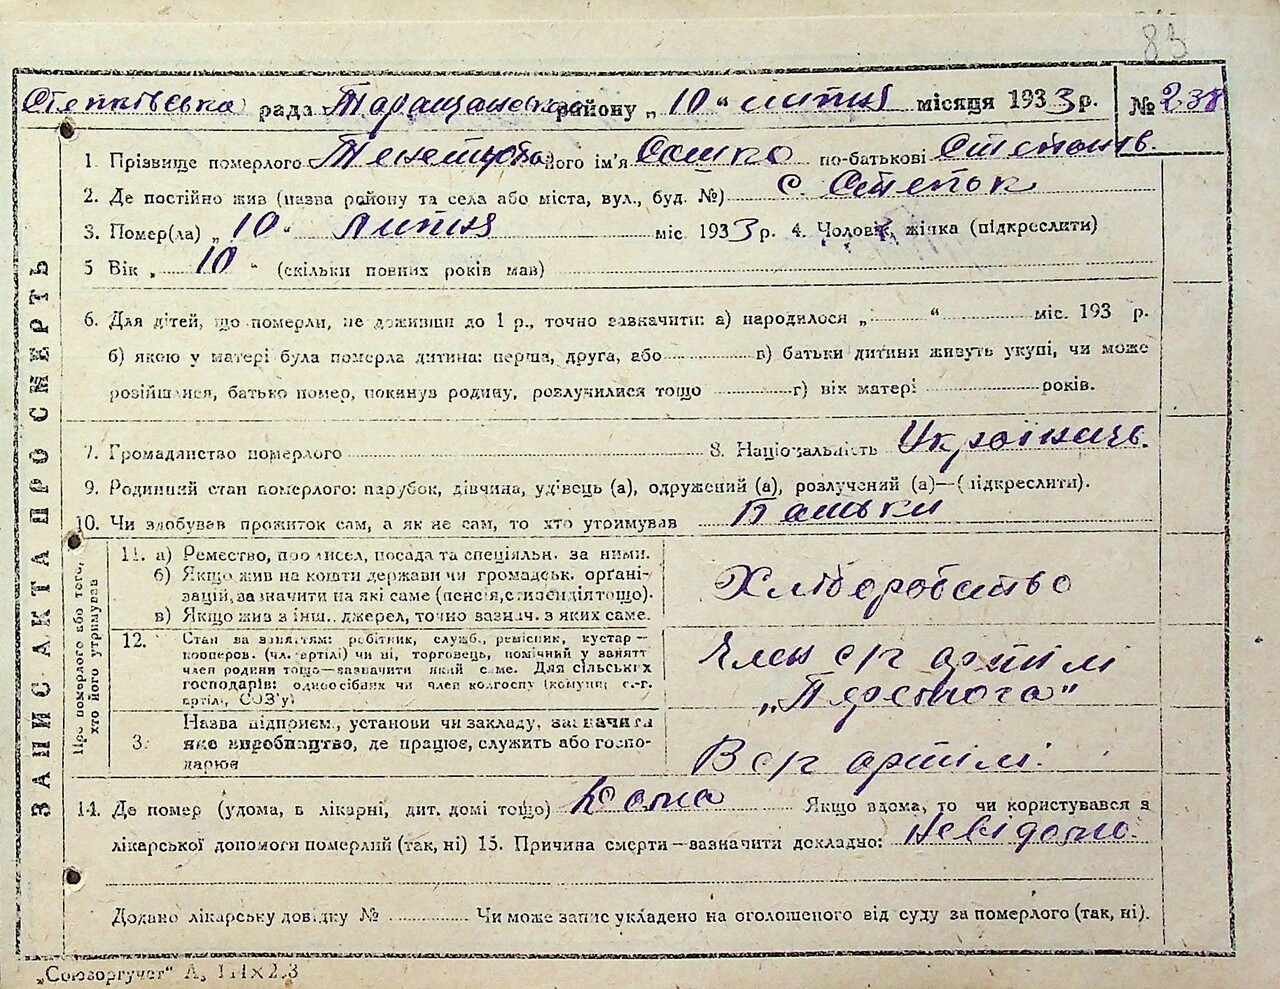 85
Степківська рада Таращанськ району „10“ липня місяця 1933 р. № 238
1. Прізвище померлого його ім'я Сашко по-батькові Степанів.
2. Де постійно жив (назва району та села або міста, вул., буд. №) с. Степок
3. Помер(ла) „10“ липня міс 1933 р. 4. Чоловік, жінка (підкреслити)
5 Вік „ 10 “ (скільки повних років мав)
6. Для дітей, що померли, не доживши до 1 р., точно зазначити: а) народилося „ “ міс. 193 р.
б) якою у матері була померла дитина: перша, друга, або в) батьки дитини живуть укупі, чи може
розійшлися, батько помер, покинув родину, розлучилися тощо г) вік матері років.
7. Громадянство померлого 8. Національність Українець.
9. Родинний стан померлого: парубок, дівчина, удівець (а), одружений (а), розлучений (а)—(підкреслити).
10. Чи здобував прожиток сам, а як не сам, то хто утримував Батьки
ЗАПИС АКТА ПРО СМЕРТЬ
Про померлого або того, хто його утримував
11. а) Ремество, промисел, посада та спеціяльн. за ними.
б) Якщо жив на кошти держави чи громадськ. органі-
зацій, зазначити на які саме (пенсія, стипендія тощо).
в) Якщо жив з інш. джерел, точно вазнач. з яких саме.
Хліборобство
12. Стан за заняттям: робітник, служб., ремісник, кустар —
кооперов. (чл. артілі) чи ні, торговець, помічний у занятт
член родини тощо—зазначити який саме. Для сільських
господарів: одноосібник чи член колгоспу (комуни, с.-г.
артілі, СОЗ'у)
Член с/г артілі
„Перемога“
3. Назва підприєм., установи чи закладу, зазначити
яке виробництво, де працює, служить або госпо-
дарює
В с/г артілі.
14. Де помер (удома, в лікарні, дит. домі тощо) Дома Якщо вдома, то чи користувався з
лікарської допомоги померлий (так, ні) 15. Причина смерти—зазначити докладно: Невідомо.
Додано лікарську довідку № Чи може запис укладено на оголошеного від суду за померлого (так, ні).
„Союзоргучет“ А,